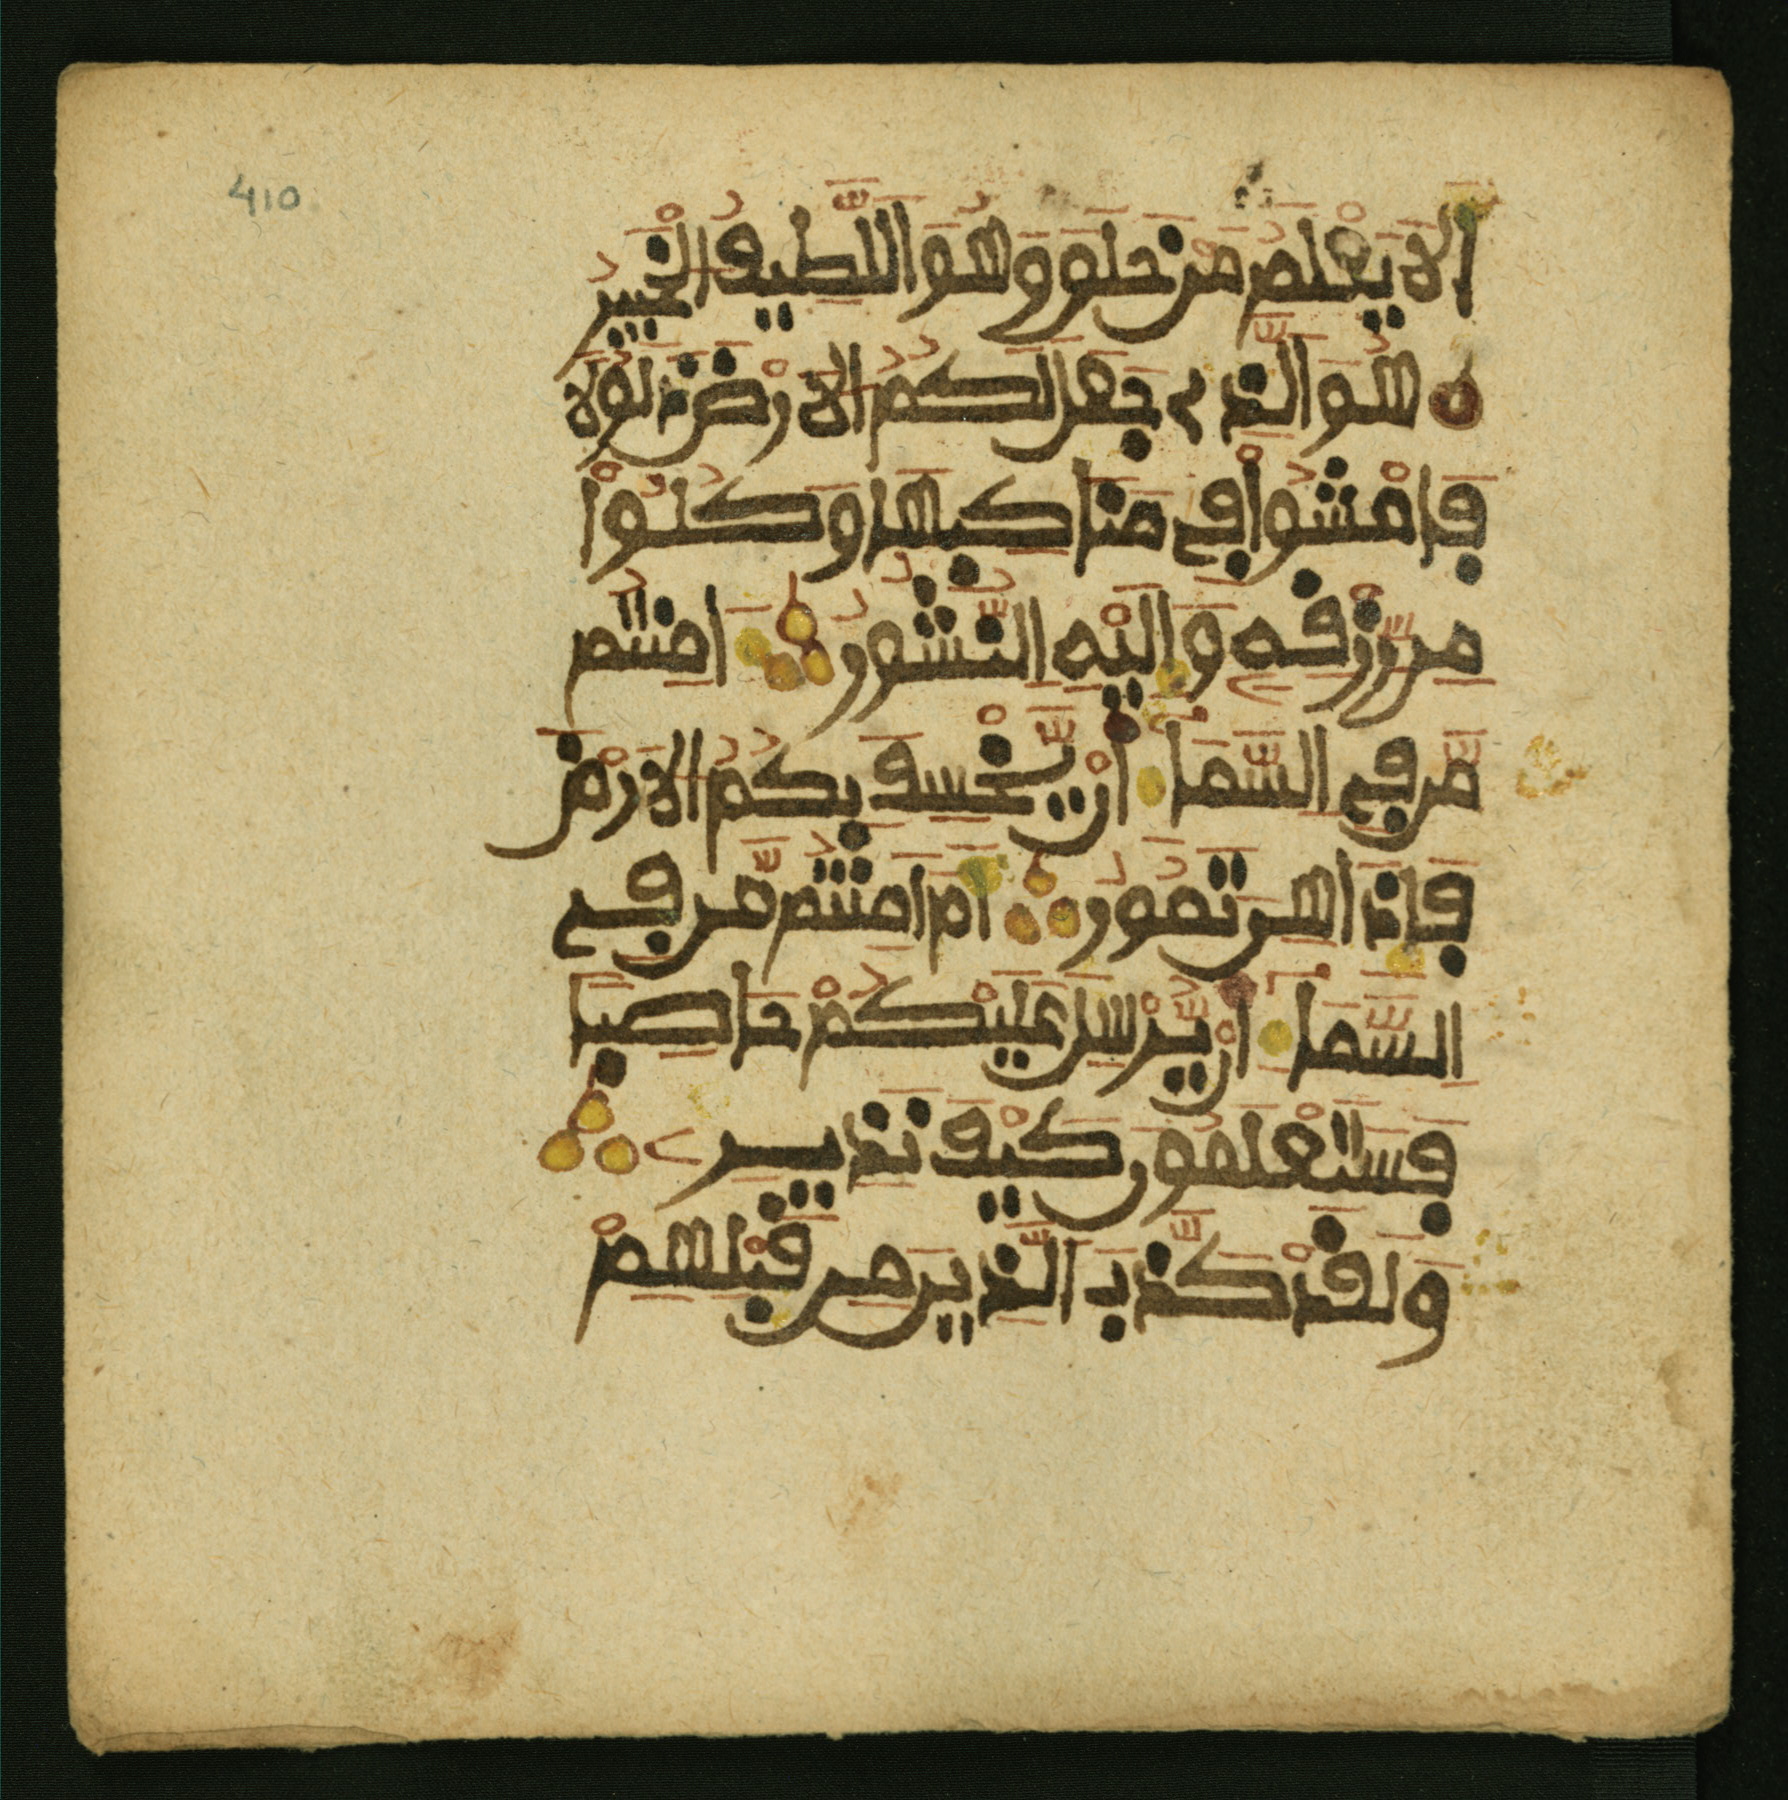 410
اَلَا يَعْلَمُ مَنْ خَلَقَ وَهُوَ اَللَّطِيفُ اُلْخَبِيرُ
هُوَ اَلَّذِے جَعَلَ لَكُمُ اُلَارْضَ ذَلُولا
فَامْشُواْ فِے مَنَاكِبِهَا وَكُلُواْ
مِن رِّزْقِهِ وَإِلَيْهِ اِلنُّشُورُ ءَامِنتُم
مَّن فِے اِلسَّمَآءِ انْ يَّخْسِفَ بِكُمُ اُلَارْضَ
فَإِذَا هِيَ تَمُورُ أَمَ امِنتُم مَّن فِے
اِلسَّمَآءِ انْ يُّرْسِلَ عَلَيْكُمْ حَاصِباً
فَسَتَعْلَمُونَ كَيْفَ نَذِيرِ
وَلَقَدْ كَذَّبَ اَلَّذِينَ مِن قَبْلِهِمْ